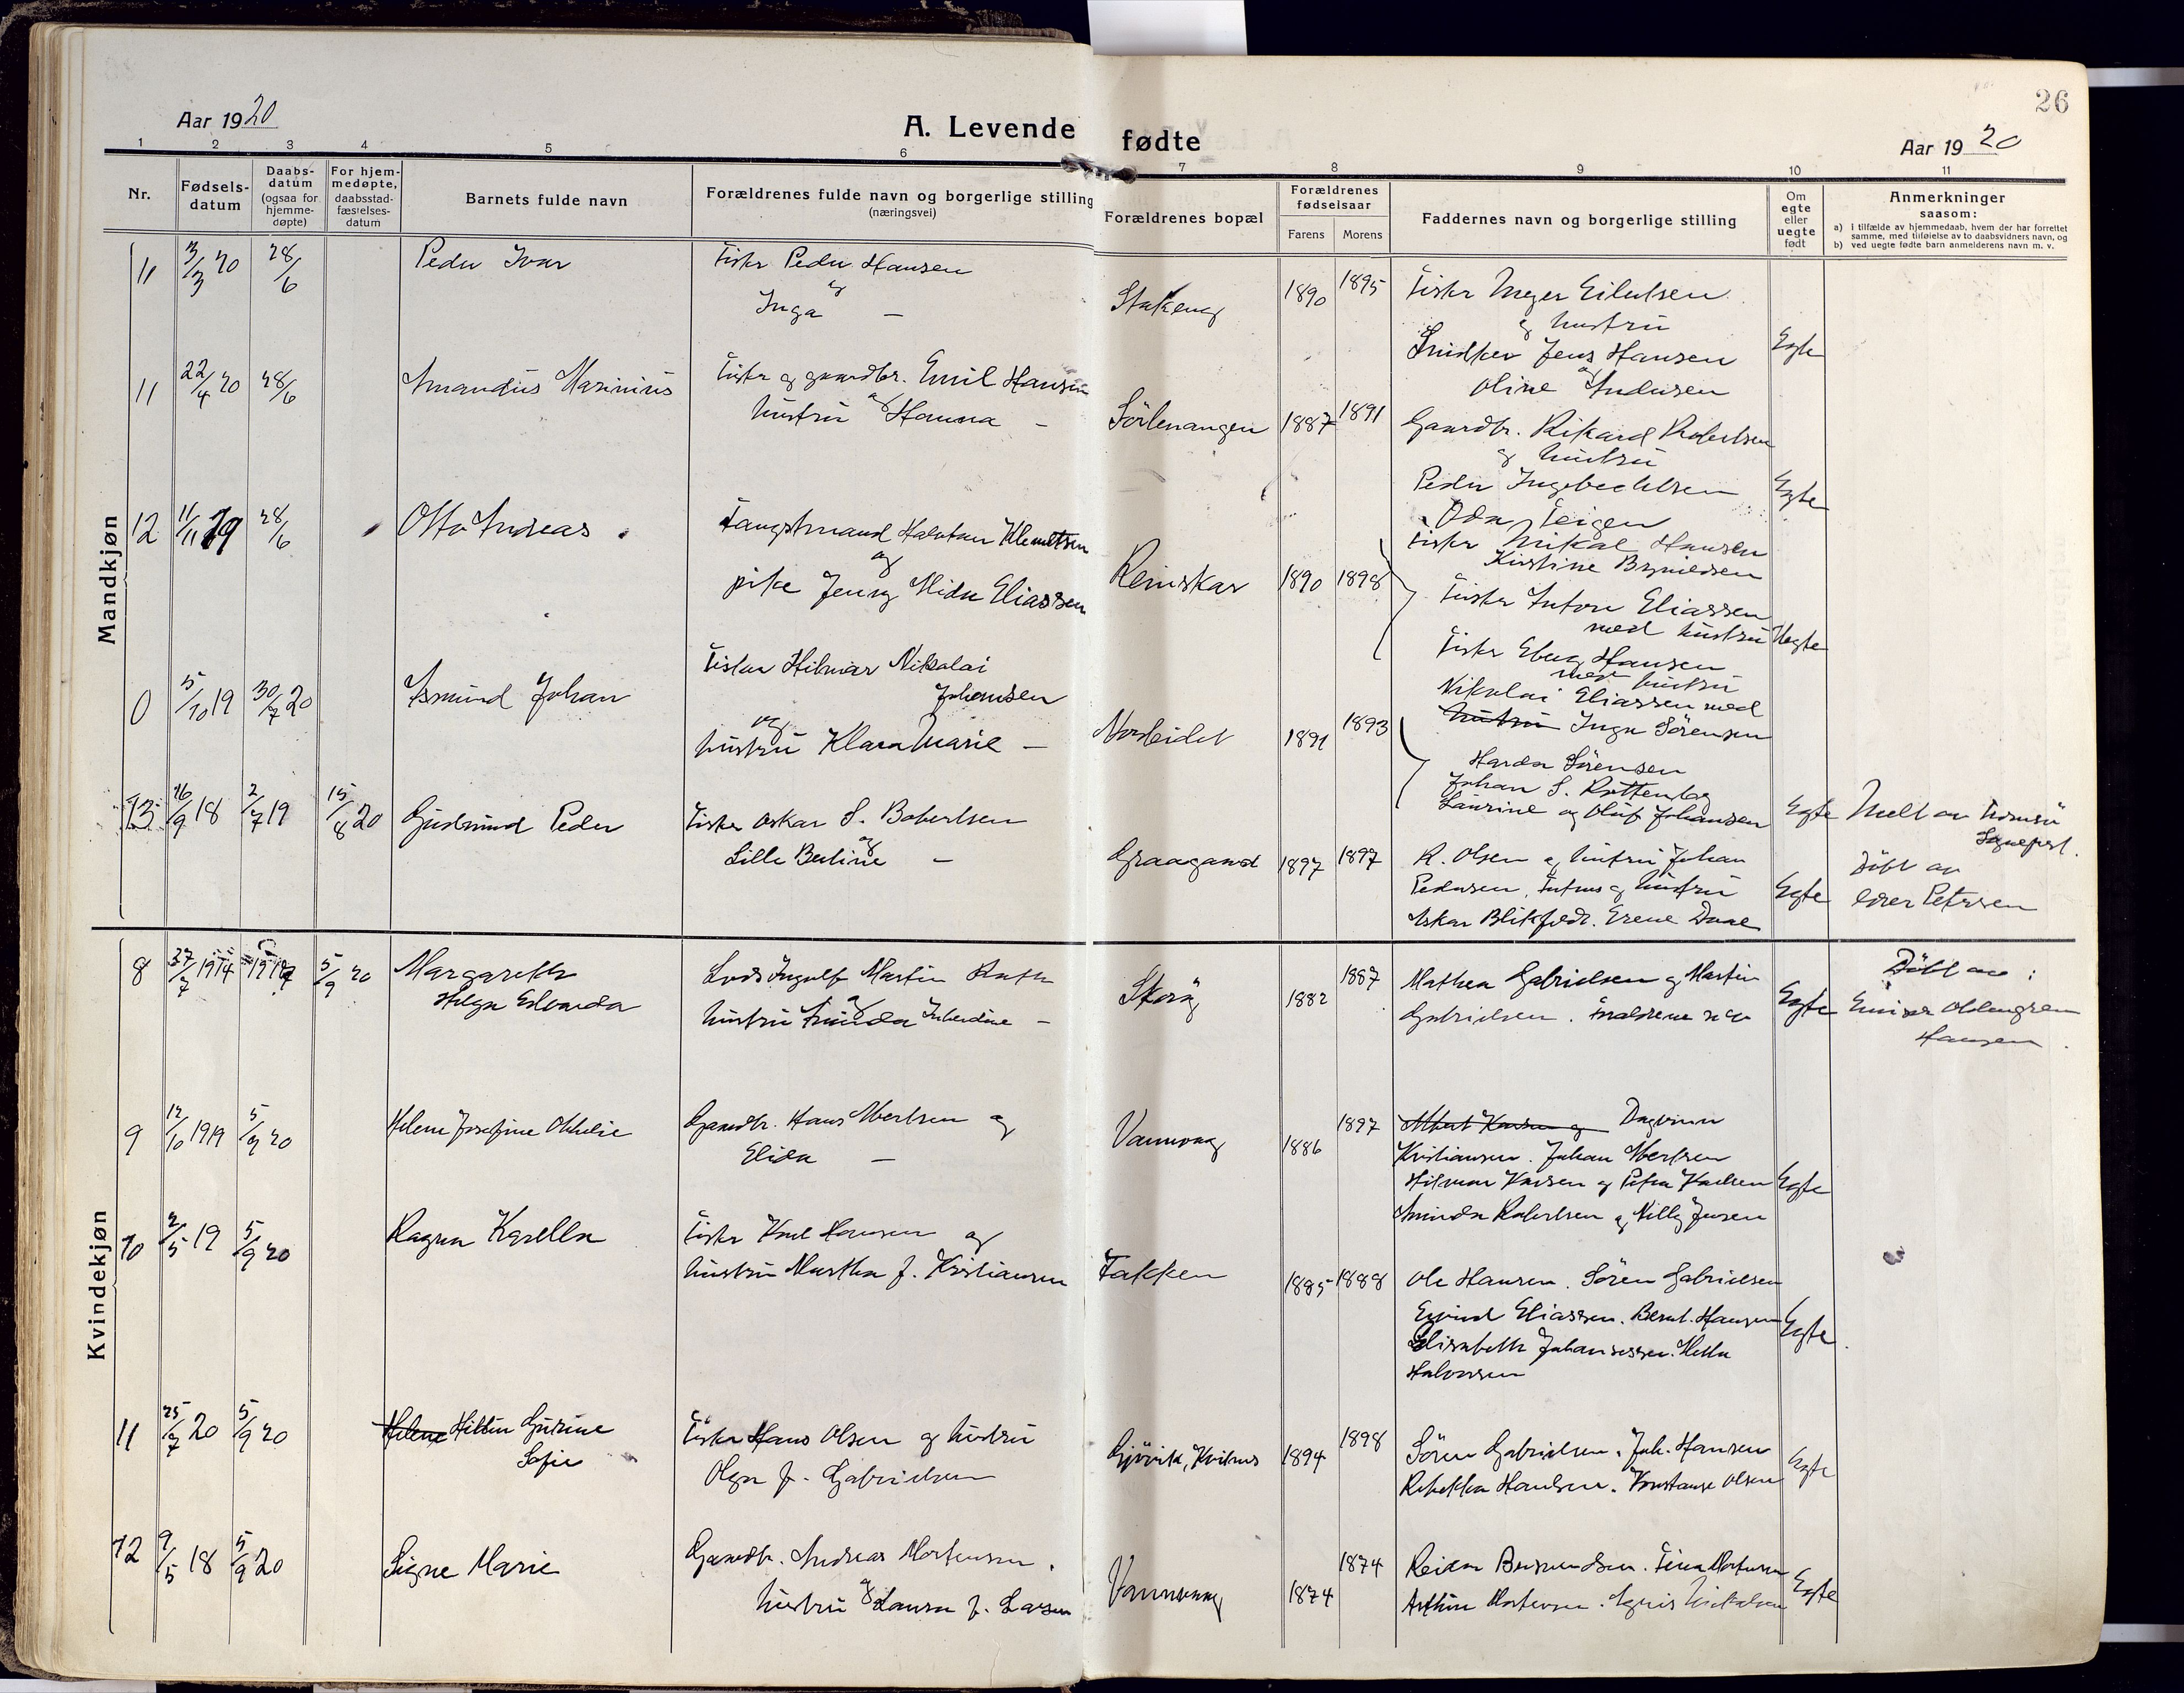 26
Aar 1920
A. Levende fødte
Aar 1920
1 2 3 4 5 6 7 8 9 10 11
Nr.
Fødsels-
datum
Daabs-
datum
(ogsaa for
hjemme-
døpte)
For hjem-
medøpte,
daabsstad-
fæstelses-
datum
Barnets fulde navn
Forældrenes fulde navn og borgerlige stilling
(næringsvei)
Forældrenes bopæl
Forældrenes
fødselsaar
Farens Morens
Faddernes navn og borgerlige stilling
Om
egte
eller
uegte
født
Anmerkninger
saasom:
a) I tilfælde av hjemmedaab, hvem der har forrettet
samme, med tilføielse av to daabsvidners navn, og
b) ved uegte fødte barn anmelderens navn m. v.
Mandkjøn
11 3/3 20 28/6 Peder Ivar Fisker Peder Hansen
og
Inga —
Stakeng 1890 1895 Fisker Meyer Eilertsen
og hustru
Snidker Jens Hansen
og
Oline Andersen
Egte
11 22/4 20 28/6 Amandus Marinius Fisker og gaardbr. Emil Hansen
og
hustru Hanna —
Sörlenangen 1887 1891 Gaardbr. Rikard Robertsen
og hustru
Peder Ingebertsen
Oda Teigen
Egte
12 11/11 19 28/6 Otto Andreas Fangstmand Halvtan Klemetsen
og
pike Jenny Alida Eliassen
Reinskar 1890 1898 Fisker Mikal Hansen
Kirstine Brynildsen
Fisker Anton Eliassen
med hustru
Fisker Ebeng Hansen
med hustru
Uegte
0 5/10 19 30/7 20 Asmund Johan Fisker Hilmar Nikolai
Johansen
og
hustru Klara Marie —
Nordeidet 1891 1893 Nikolai Eliassen med
hustru Inga Sörensen
Harda Sörensen
Johan S.
Laurine og Oluf Johansen
Egte Meldt av Tromsö
Sognepræst.
13 16/9 18 2/7 19 15/8 20 Gudmund Peder Fisker Oskar S. Robertsen
og
Lilli Berline —
Graagand 1897 1897 R. Olsen og hustru Johan
Pedersen, og hustru
Askar Blikfedt. Erene
Egte Döbt av
Petersen
Kvindekjøn
8 27/7 1914 1917 5/9 20 Margareth
Helga Edvarda
Lods Ingolf Martin
og
hustru —
1882 1887 Mathea Gabrielsen og Martin
Gabrielsen. Forældrene
Egte Döbt av:
Hansen
9 12/10 1919 5/9 20 Helene Josefine Othelie Gaardbr. Hans Albertsen og
Elida —
Vannvaag 1886 1897 Albert Karlsen og Dagvinn
Kristiansen. Johan Albertsen
Hilmar Karlsen og Petra Karlsen
Aminda Robertsen og Nelly Jensen
Egte
10 2/5 19 5/9 20 Ragna Karella Fisker Karl Hansen og
hustru Martha f. Kristiansen
Fakken 1885 1888 Ole Hansen. Sören Gabrielsen
Eyvind Eliassen. Bernt. Hansen
Elisabeth Johannessen.
Halvorsen
Egte
11 25/7 20 5/9 20 Helene Hildur Gurine
Sofie
Fisker Hans Olsen og hustru
Olga f. Gabrielsen
Gjövik, 1894 1898 Sören Gabrielsen. Joh. Hansen
Rebekka Hansen. Konstanse Olsen
Egte
12 9/5 18 5/9 20 Signe Marie Gaardbr. Andreas Mortensen.
og
hustru Laura f. Larsen
Vannvaag 1874 1874 Reidar. Tina Mortensen
Arthur Mortensen. Agnes
Egte